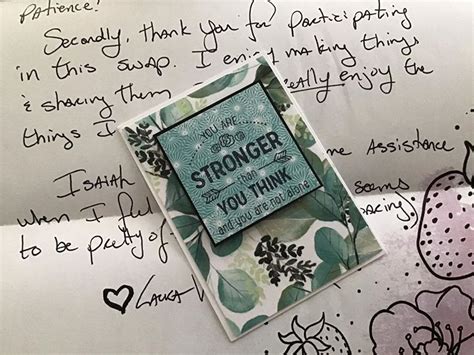 patience!
Secondly, thank you for participating
in this swap. I enjoy making things
& sharing them
really enjoy the
things I
Isaiah
me Assistance
when I feel
seems
to be pretty of
♡ Laura
YOU ARE
STRONGER
than
YOU THINK
and you are not alone